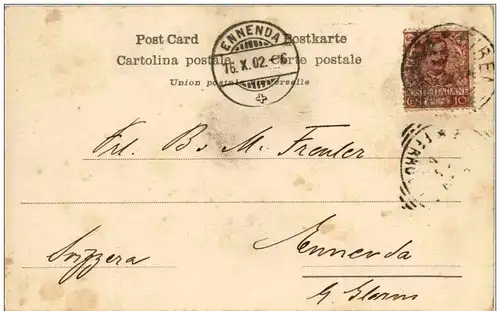 ENNENDA
16.X.02.-6
Post Card Postkarte
Cartolina postale Carte postale
Union postale universelle
POSTE ITALIANE
10
FERRO
Frl. B. M. Freuler
Ennenda
Svizzera
b. Glarus